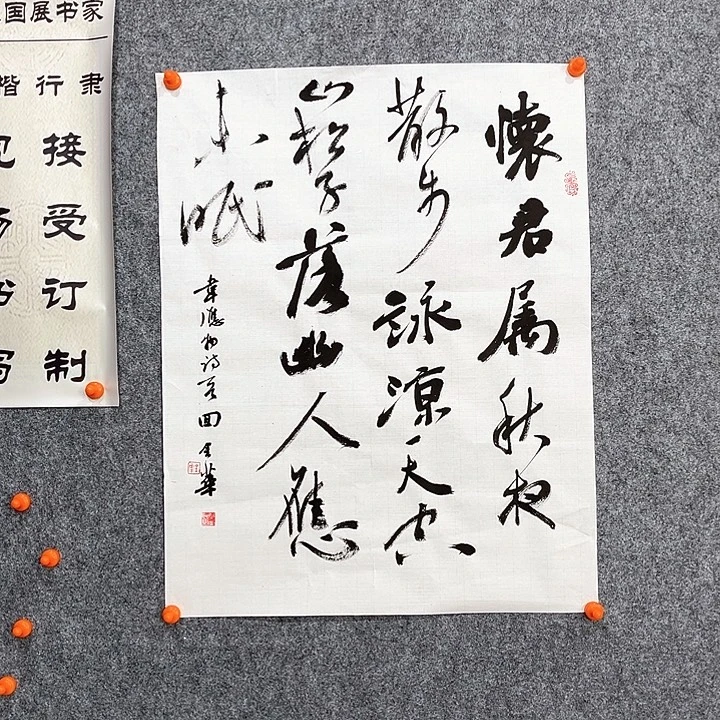 懷君属秋夜
散步詠凉天空
山松子落幽人應
未眠
韋應物詩
国展书家
楷行隶
接受订制